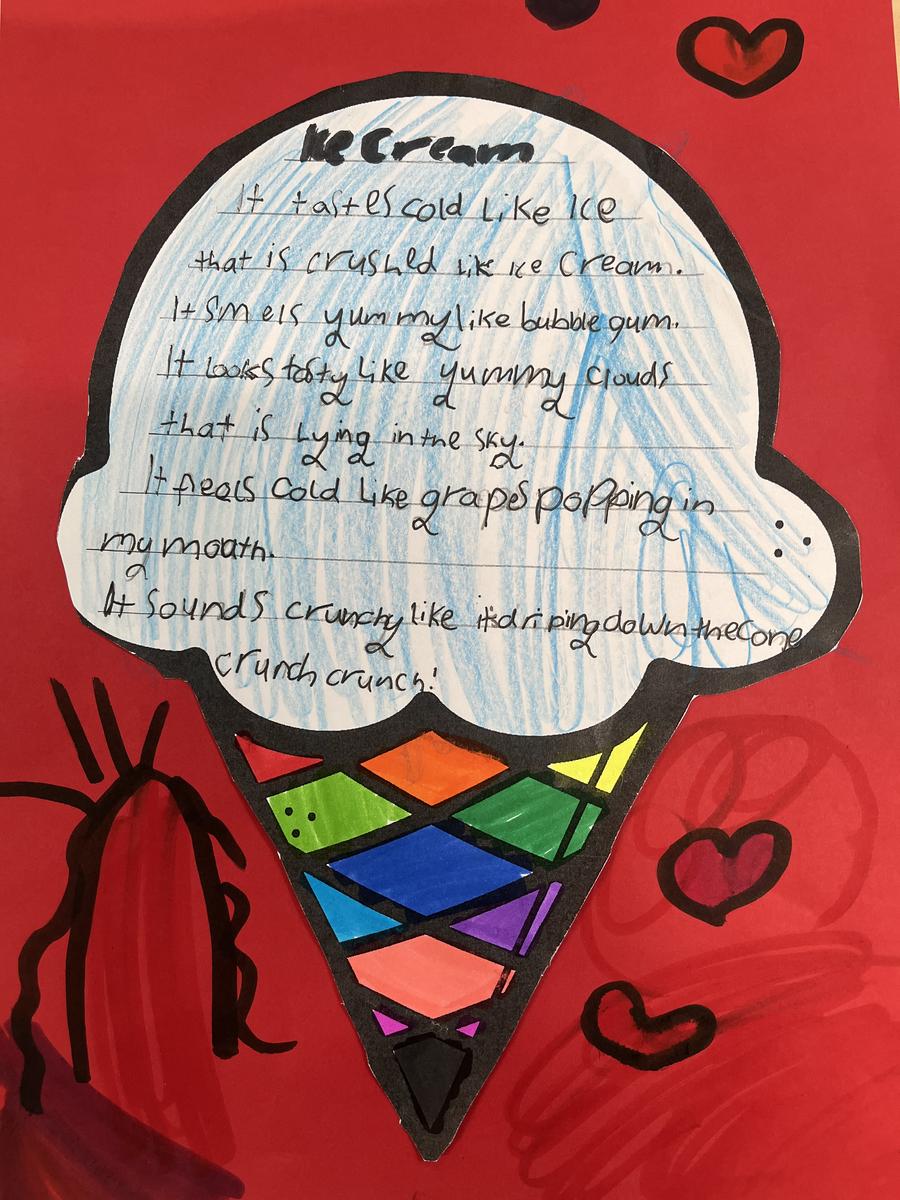 Ice Cream
It tastes cold like Ice
that is crushed like ice Cream.
It Smels yummy like bubble gum.
It looks tasty like yummy clouds
that is Lying in the sky.
It feels cold like grapes popping in
my moath.
It Sounds crunchy like it's driping down the Cone
crunch crunch!